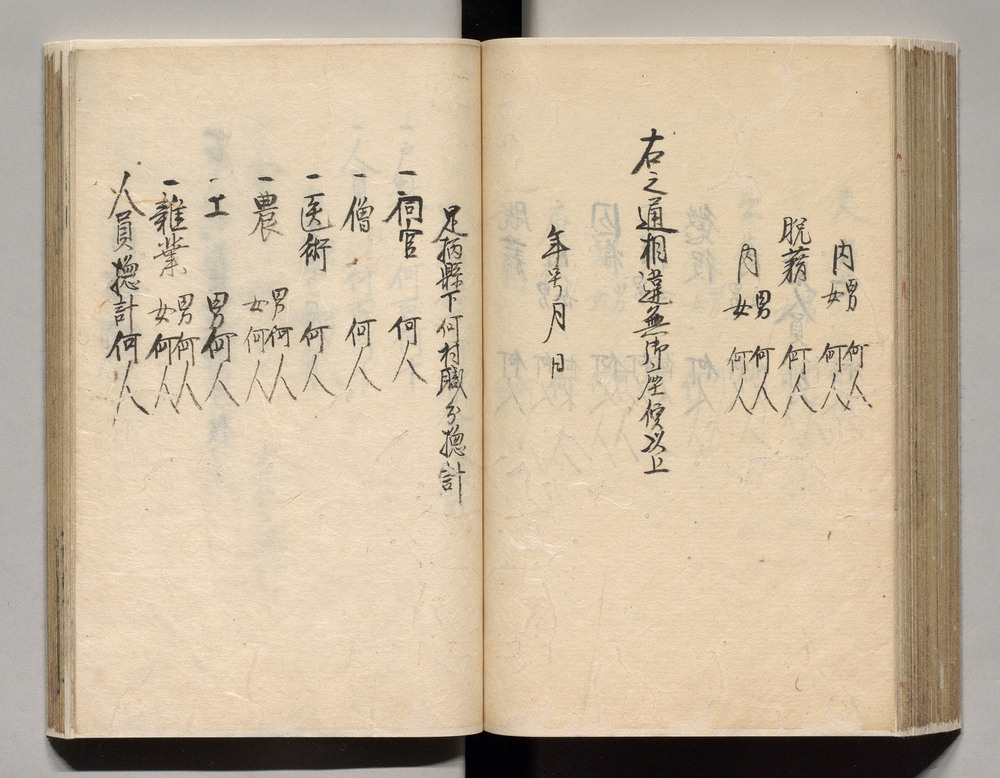 内男何人
女何人
脱籍何人
内男何人
女何人
右之通相違無御座候以上
年号月日
足柄縣下何村職分惣計
一祠官何人
一僧何人
一医術何人
一農男何人
女何人
一工男何人
一雜業男何人
女何人
人員惣計何人